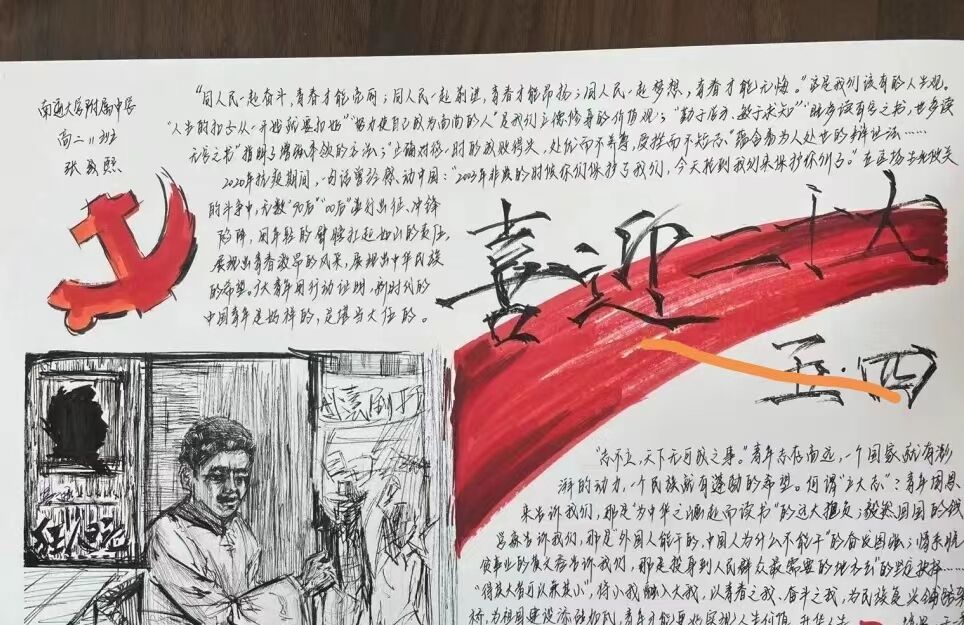 "同人民一起奋斗，青春才能亮丽；同人民一起前进，青春才能昂扬；同人民一起梦想，青春才能无悔。"这是我们该有的人生观。
南通大学附属中学
"人生的扣子从一开始就要扣好""努力使自己成为高尚的人"是我们立德修身的价值观；"勤于学习、敏于求知""既多读有字之书，也多读
高二11班
无字之书"指明了增强本领的方法；"正确对待一时的成败得失，处优而不养尊，受挫而不短志"蕴含着为人处世的辩证法……
张 熙
2020年抗疫期间，一句话曾经感动中国："2003年非典的时候你们保护了我们，今天轮到我们来保护你们了。"在疫情
的斗争中，无数"90后""00后"逆行出征、冲锋
陷阵，用年轻的臂膀扛起如山的责任，
展现出青春激昂的风采，展现出中华民族
的希望。广大青年用行动证明，新时代的
中国青年是好样的，是堪当大任的。
喜迎二十大
五·四
狂人日记
"志不立，天下无可成之事。"青年志存高远，一个国家就有澎
湃的动力，一个民族就有蓬勃的希望。何谓"立大志"？青年周恩
来告诉我们，那是"为中华之崛起而读书"的远大抱负；毅然回国的钱
学森告诉我们，那是"外国人能干的，中国人为什么不能干"的奋发图强；情系脱
贫事业的黄文秀告诉我们，那是投身到人民群众最需要的地方去"的坚定抉择……
"得其大者可以兼其小"，将小我融入大我，以青春之我、奋斗之我，为民族复兴铺路架
桥，为祖国建设添砖加瓦，青年才能更好实现人生价值、升华人生